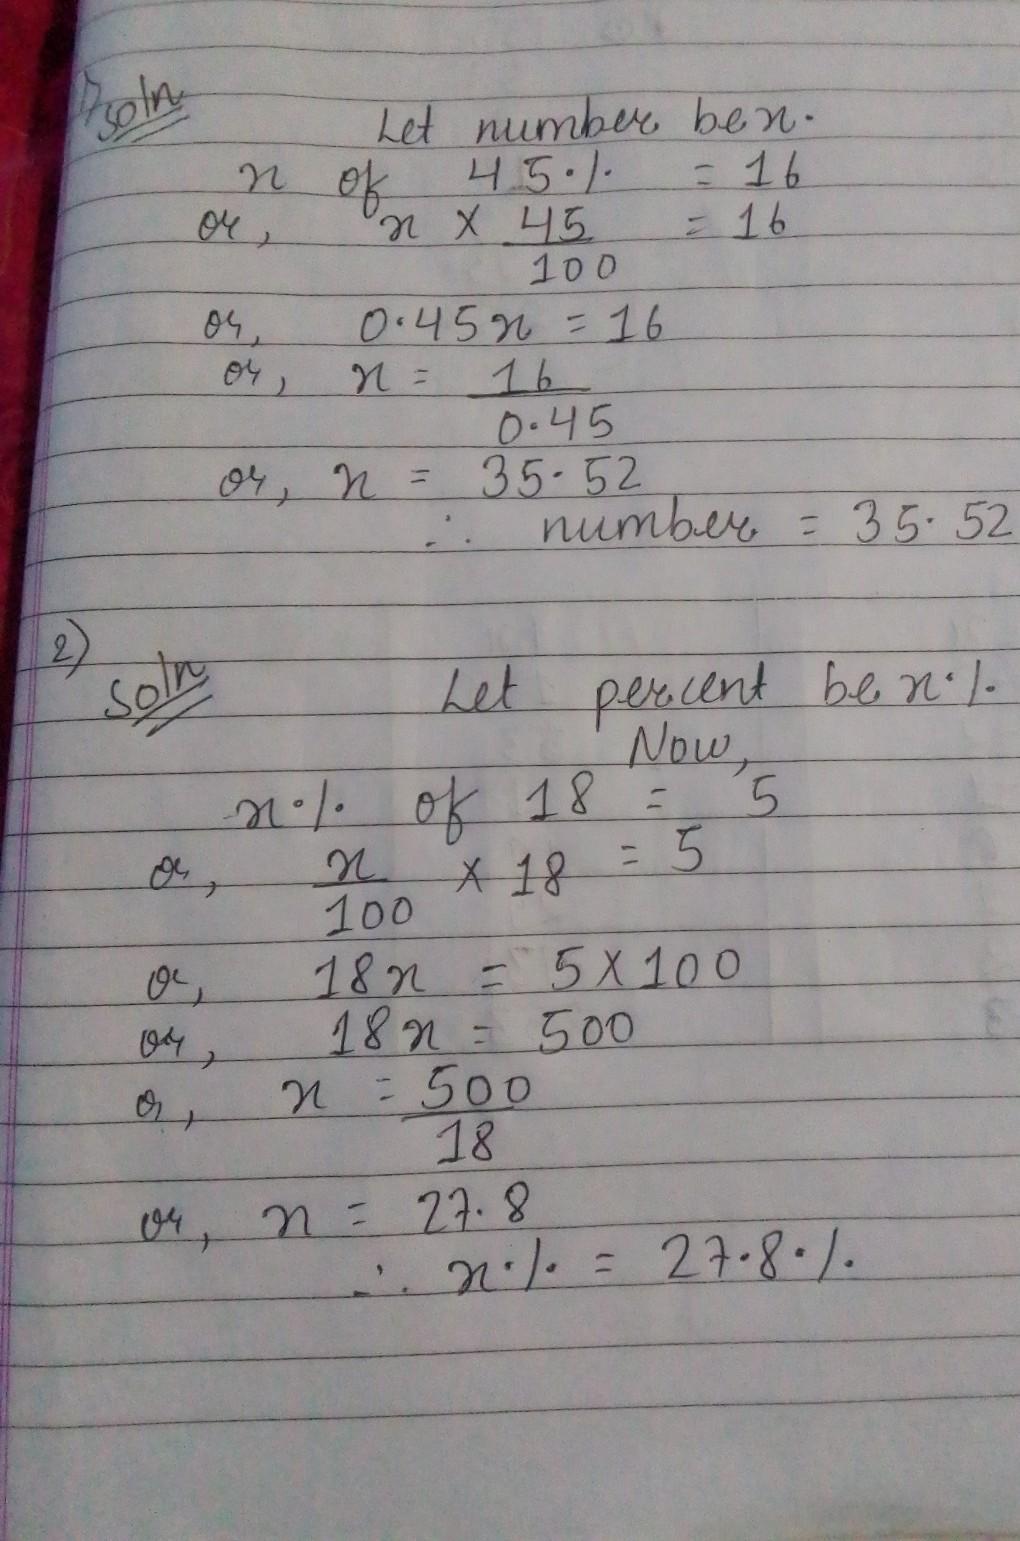 1) Soln
Let number be x.
x of 45% = 16
or, x × 45/100 = 16
or, 0.45x = 16
or, x = 16/0.45
or, x = 35.52
∴ number = 35.52
2)
Soln
Let percent be x%.
Now,
x% of 18 = 5
or, x/100 × 18 = 5
or, 18x = 5×100
or, 18x = 500
or, x = 500/18
or, x = 27.8
∴ x% = 27.8%.